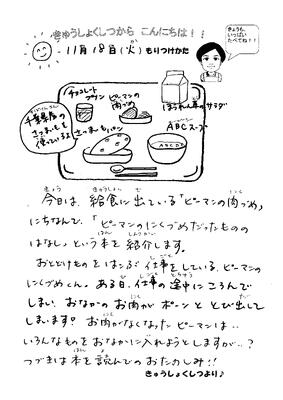 きゅうしょくしつから こんにちは！！
11月18日(火) もりつけかた
きょうも、
いっぱい
たべてね！！
チョコレート
プリン
ピーマンの
肉づめ
ほうれん草のサラダ
千葉県産の
さつまいもを
使っているよ
さつまいもパン
ABCスープ
今日は、給食に出ている「ピーマンの肉づめ」
にちなんで、「ピーマンのにくづめだったものの
はなし」という本を紹介します。
おとどけものをはこぶ仕事をしている、ピーマンの
にくづめくん。ある日、仕事の途中にころんで
しまい、おなかのお肉がポーンととび出して
しまいます？ お肉がなくなったピーマンは‥
いろんなものをおなかに入れようとしますが‥？
つづきは本を読んでのおたのしみ!!
きゅうしょくしつより♪